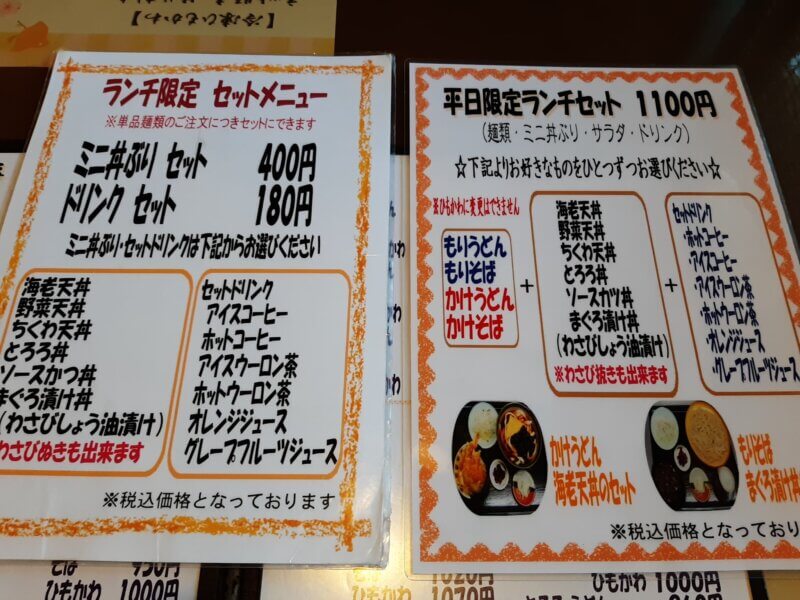 【冷凍ひもかわ】
ランチ限定 セットメニュー
※単品麺類のご注文につきセットにできます
ミニ丼ぶり セット 400円
ドリンク セット 180円
ミニ丼ぶり・セットドリンクは下記からお選びください
海老天丼
野菜天丼
ちくわ天丼
とろろ丼
ソースかつ丼
まぐろ漬け丼
(わさびしょう油漬け)
わさびぬきも出来ます
セットドリンク
アイスコーヒー
ホットコーヒー
アイスウーロン茶
ホットウーロン茶
オレンジジュース
グレープフルーツジュース
※税込価格となっております
平日限定ランチセット 1100円
(麺類・ミニ丼ぶり・サラダ・ドリンク)
☆下記よりお好きなものをひとつずつお選びください☆
※ひもかわに変更はできません
もりうどん
もりそば
かけうどん
かけそば
+
海老天丼
野菜天丼
ちくわ天丼
とろろ丼
ソースカツ丼
まぐろ漬け丼
(わさびしょう油漬け)
※わさび抜きも出来ます
+
セットドリンク
・ホットコーヒー
・アイスコーヒー
・アイスウーロン茶
・ホットウーロン茶
・オレンジジュース
・グレープフルーツジュース
かけうどん
海老天丼のセット
もりそば
まぐろ漬け丼
※税込価格となってお
そば 950円
ひもかわ 1000円
1020円
1070円
ひもかわ 1000円